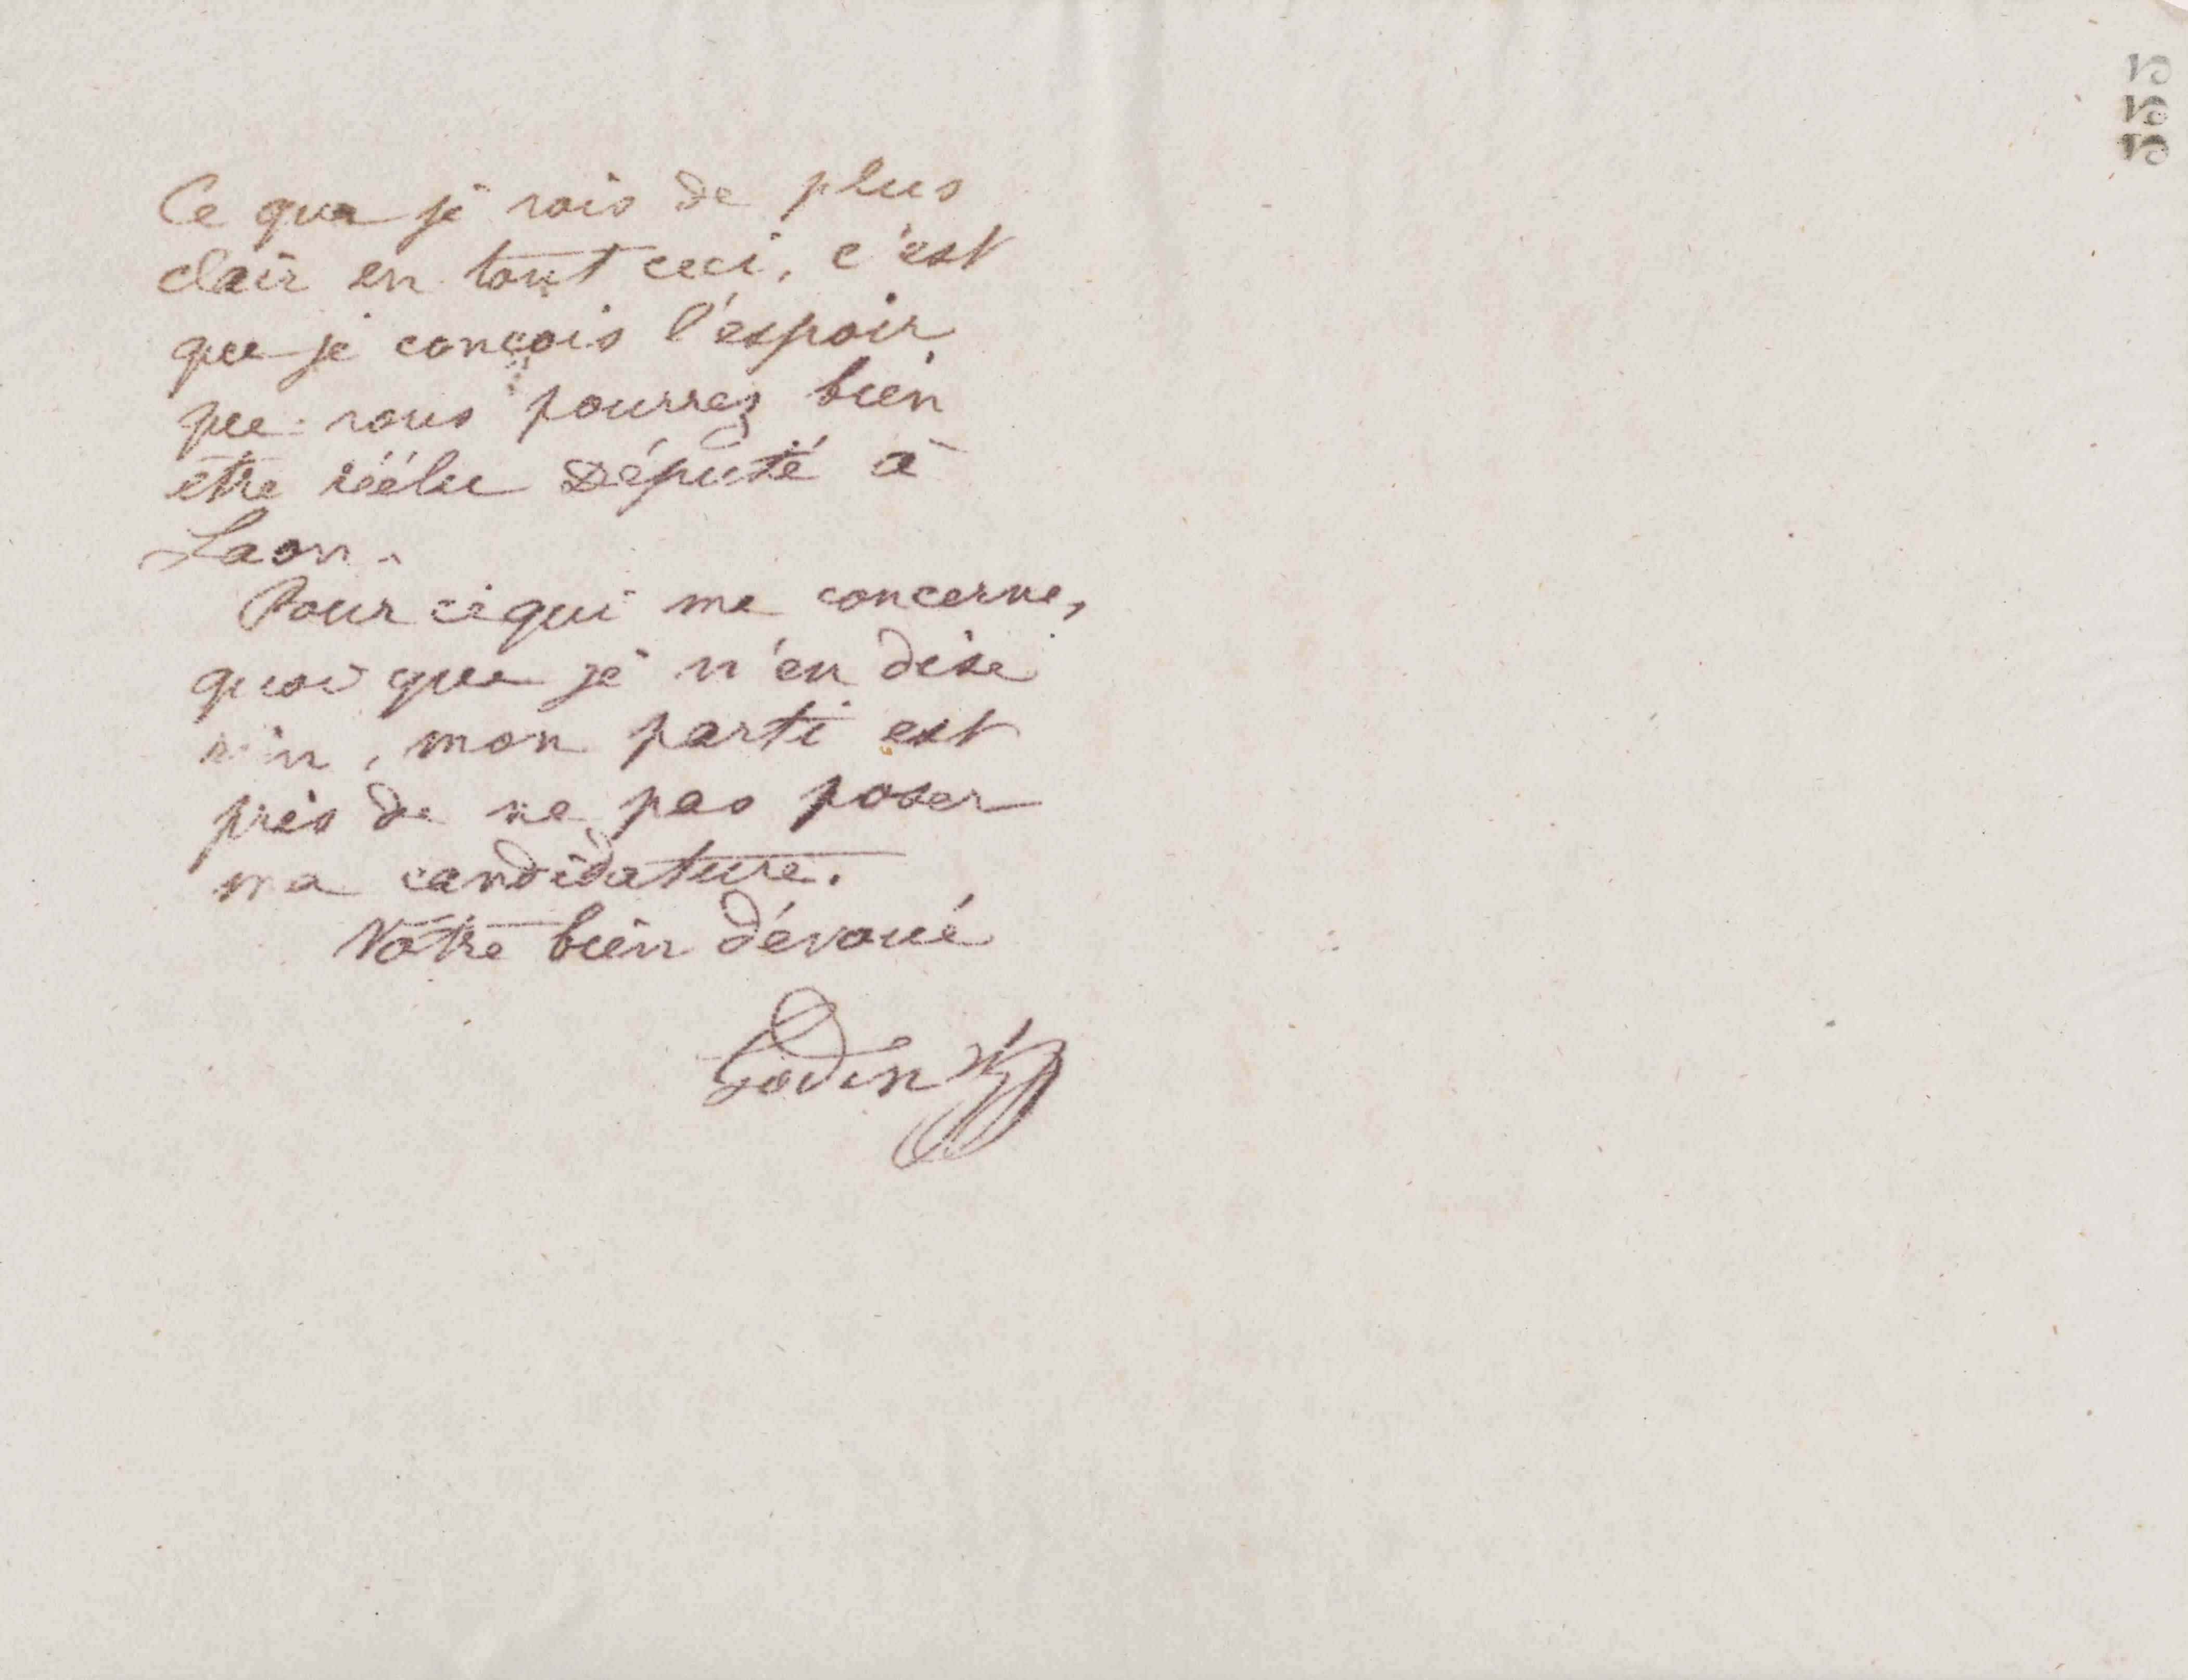 Ce que je vois de plus
clair en tout ceci, c'est
que je conçois l'espoir
que vous pourrez bien
être réélu Député à
Laon.
Pour ce qui me concerne,
quoi que je n'en dise
rien, mon parti est
près de ne pas poser
ma candidature.
Votre bien dévoué
Godin